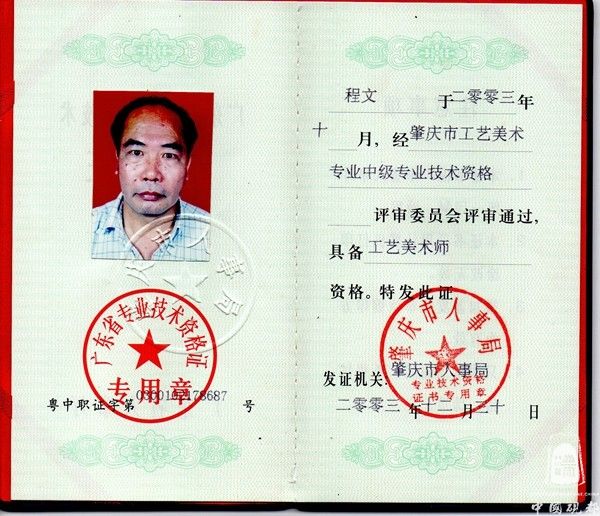 人事局
广东省专业技术资格证
专用章
粤中职证字第 号
程文 于二零零三年
十 月，经肇庆市工艺美术
专业中级专业技术资格
评审委员会评审通过，
具备工艺美术师
资格。特发此证
肇庆市人事局
专业技术资格
证书专用章
发证机关：肇庆市人事局
二零零三年十二月三十日
中國硯都